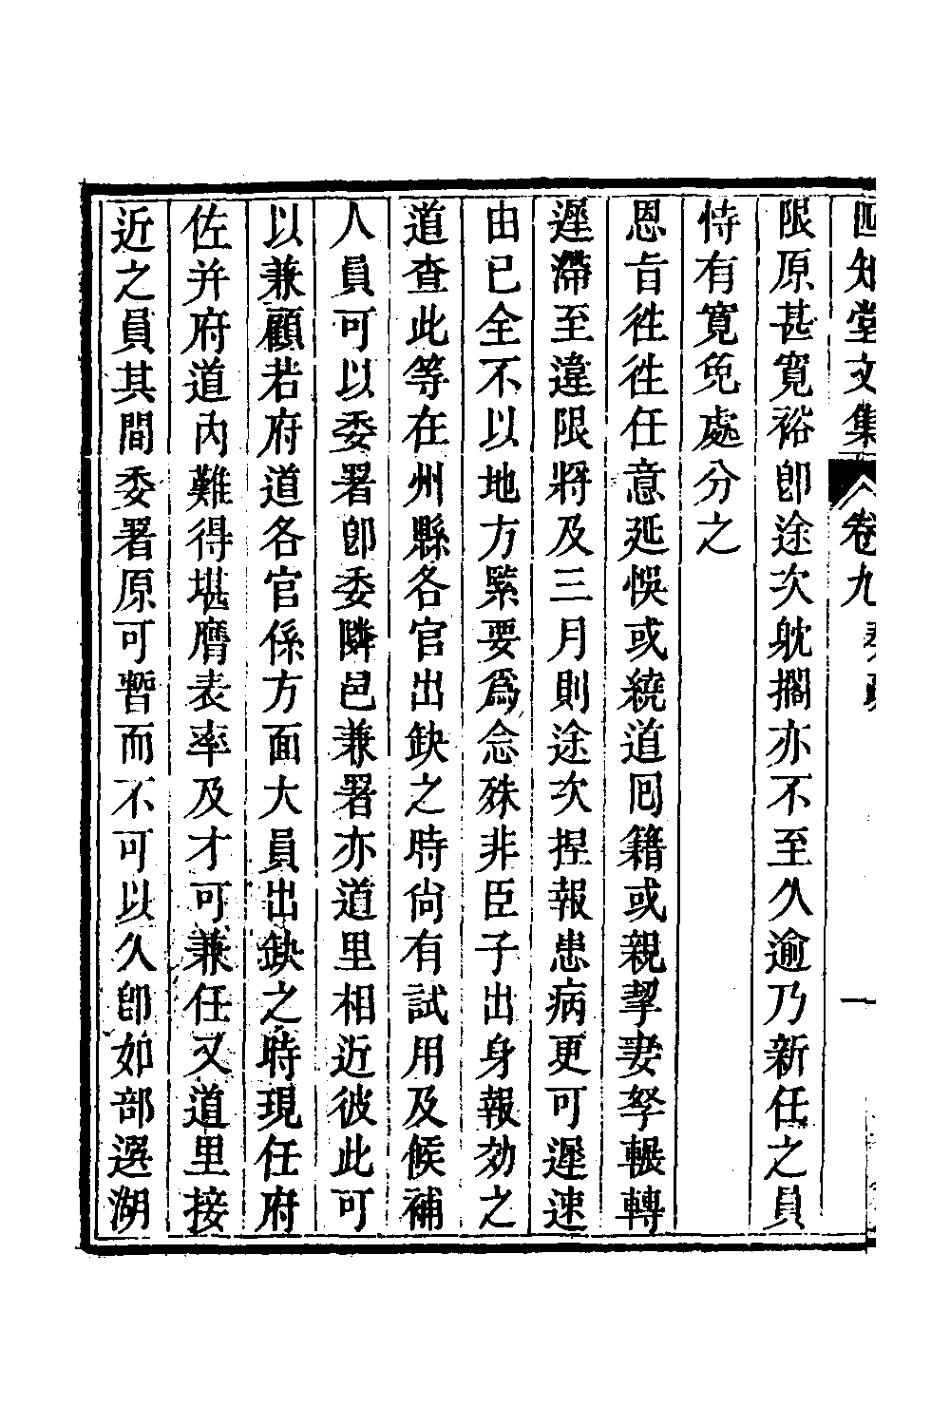 四知堂文集 卷九 奏疏 一
限原甚寬裕卽途次躭擱亦不至久逾乃新任之員
恃有寬免處分之
恩旨徃徃任意延悞或繞道囘籍或親挈妻孥輾轉
遲滯至違限將及三月則途次揑報患病更可遲速
由已全不以地方緊要爲念殊非臣子出身報効之
道查此等在州縣各官出缺之時尙有試用及候補
人員可以委署卽委隣邑兼署亦道里相近彼此可
以兼顧若府道各官係方面大員出缺之時現任府
佐并府道內難得堪膺表率及才可兼任又道里接
近之員其間委署原可暫而不可以久卽如部選湖